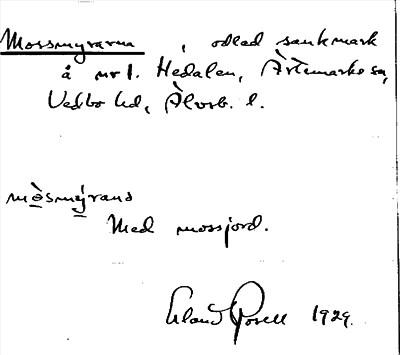 Mossmyrarna, odlad sankmark
å nr 1. Hedalen, Ärtemarks sn,
Vedbo hd, Älvsb. l.
mòsmýrand
Med mossjord.
Erland Rosell 1929.